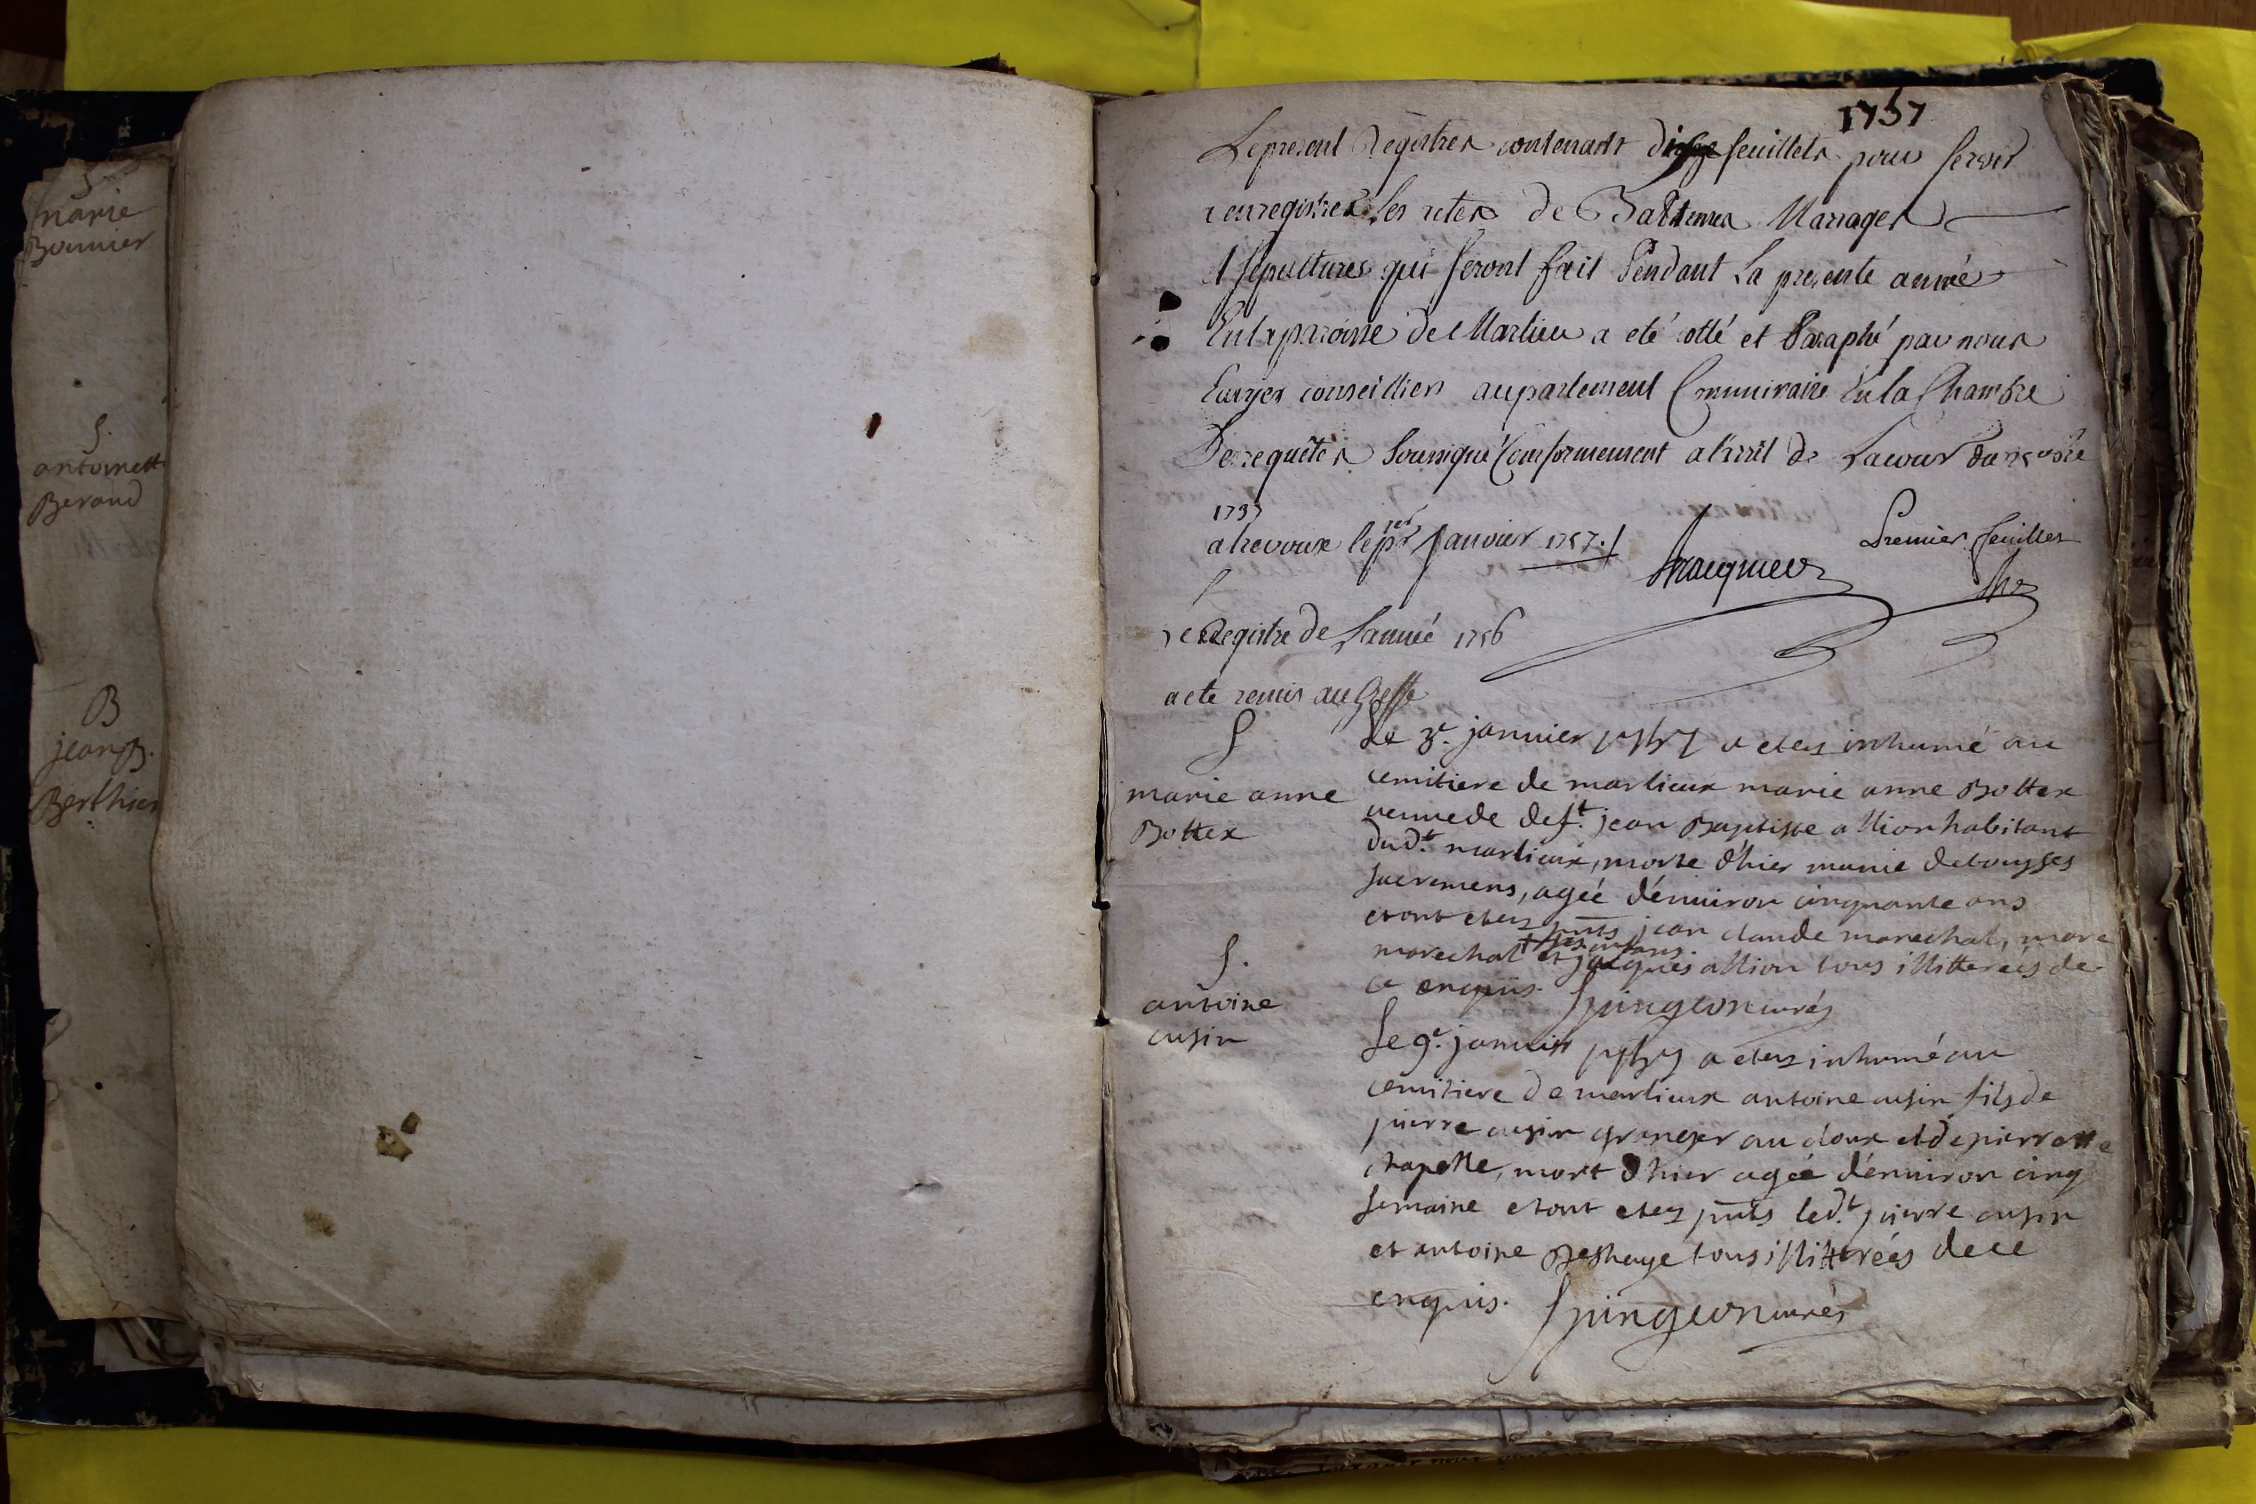 S
marie
Bouvier
S.
antoinett
Beroud
B
jean B.
Berthier
1757
Le present Registre contenant feuillets pour servir
enregistrer les actes de Battemes Mariages
et sepultures qui seront fait Pendant La presente année
En la parroisse de Marlieu a eté cotté et Paraphé par nous
Ecuyer conseillier au parlement Commissaire En la Chambre
Des requêtes Soussigné Conformement a l'arrêt de La cour
1737
a trevoux le pr Janvier 1757.
Premier feuillet
le Registre de L'année 1756
acte remis au Greffe
S
marie anne
Bottex
Le 3e. janvier 1757 a etez inhumé au
cemitiere de marlieux marie anne Bottex
veuve de deft. jean Baptiste allion habitant
dudt. marlieux, morte d'hier munie de tous ses
sacremens, ageé d'environ cinquante ans
et ont etez pnts jean claude marechal, marc
marechal et jacques allion tous illitterés de
ce enquis. Spingeon curés
S.
antoine
cusin
Le 9e. janvier 1757 a etez inhumé au
cemitiere de marlieux antoine cusin fils de
pierre cusin granger au cloux et de pierrette
chapelle, mort d'hier ageé d'environ cinq
semaine et ont etez pnts ledt. pierre cusin
et antoine Deshaye tous illittérés de ce
enquis. Spingeon curés